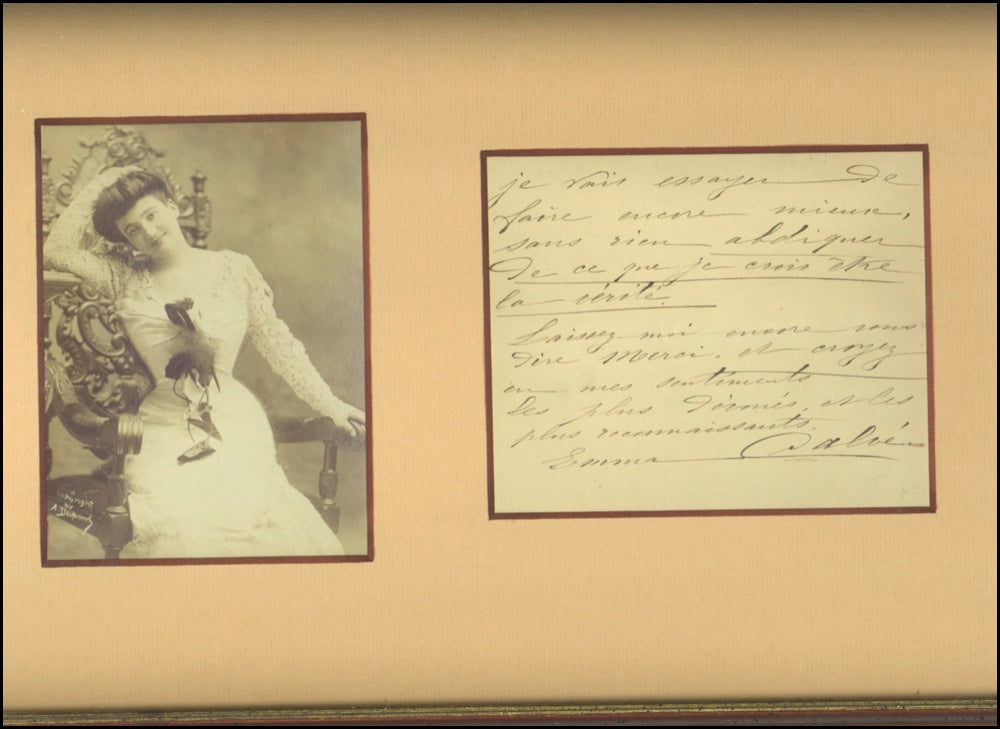 © copyright
by
A. Dupont
je vais essayer de
faire encore mieux,
sans rien abdiquer
de ce que je crois être
la vérité.
Laissez moi encore vous
dire Merci, et croyez
en mes sentiments
les plus dévoués, et les
plus reconnaissants.
Emma Calvé